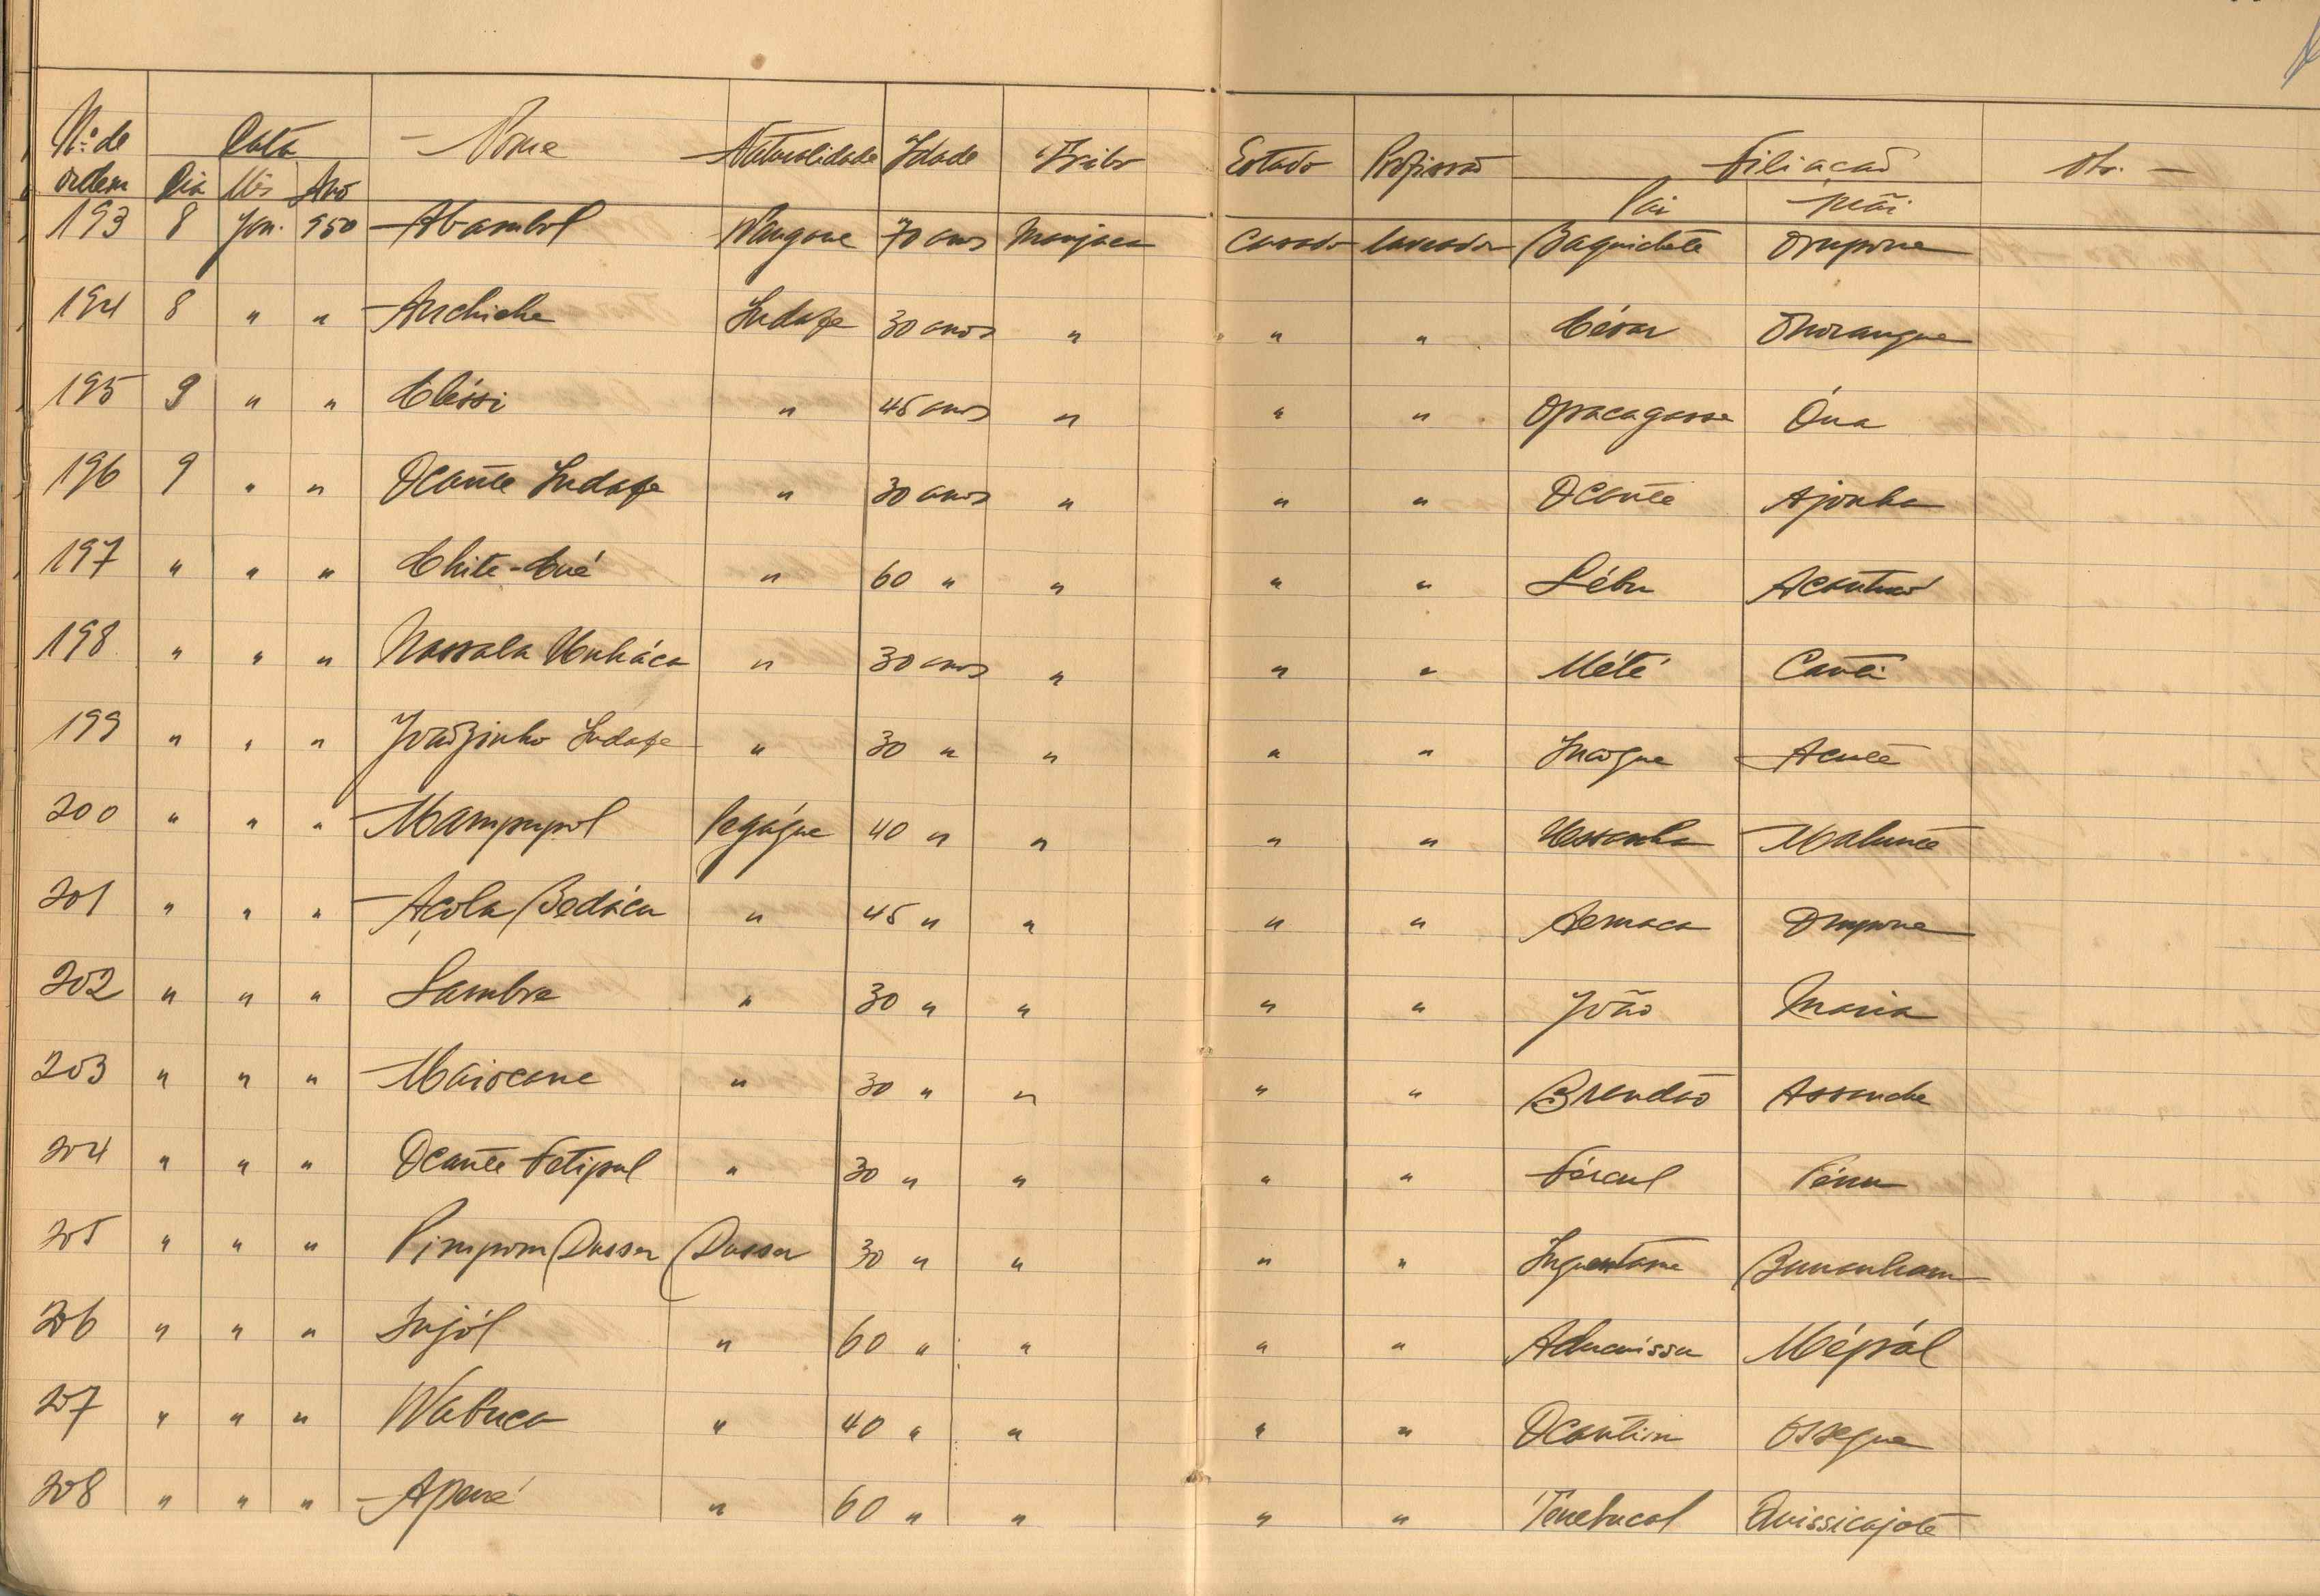 Nº de ordem Data Nome Naturalidade Idade Tribo Estado Profissão Filiação Obs. —
Dia Mês Ano Pai Mãi
193 8 Jan. 950 Abambol Wangane 70 anos Manjaca Casado lavrador Baquichete Ompone
194 8 " " Anchiche Indafe 30 anos " " " César Onorangue
195 9 " " Cléssi " 45 anos " " " Opacagasse Óna
196 9 " " Ocante Indafe " 30 anos " " " Ocante Ajonha
197 " " " Chite-Cué " 60 " " " " Lébu
198 " " " Nassala Unháca " 30 anos " " " Mété Canté
199 " " " Joãozinho Indafe " 30 " " " " Incogue Acuté
200 " " " Mampupol Pegágue 40 " " " " Ussonha Malunté
201 " " " Açola Bedácu " 45 " " " " Aemaca Ompone
202 " " " Sambra " 30 " " " " João Maria
203 " " " Maiocane " 30 " " " " Brendão Assunche
204 " " " Ocante Fetipul " 30 " " " " Fércul
205 " " " Pimpom Dassa Dassa 30 " " " " Inquentame Bunanham
206 " " " Injól " 60 " " " " Aducuissa Mépól
207 " " " Watuca " 40 " " " " Ocantim Ossegue
208 " " " Apené " 60 " " " " Tenebucol Quissicajoté